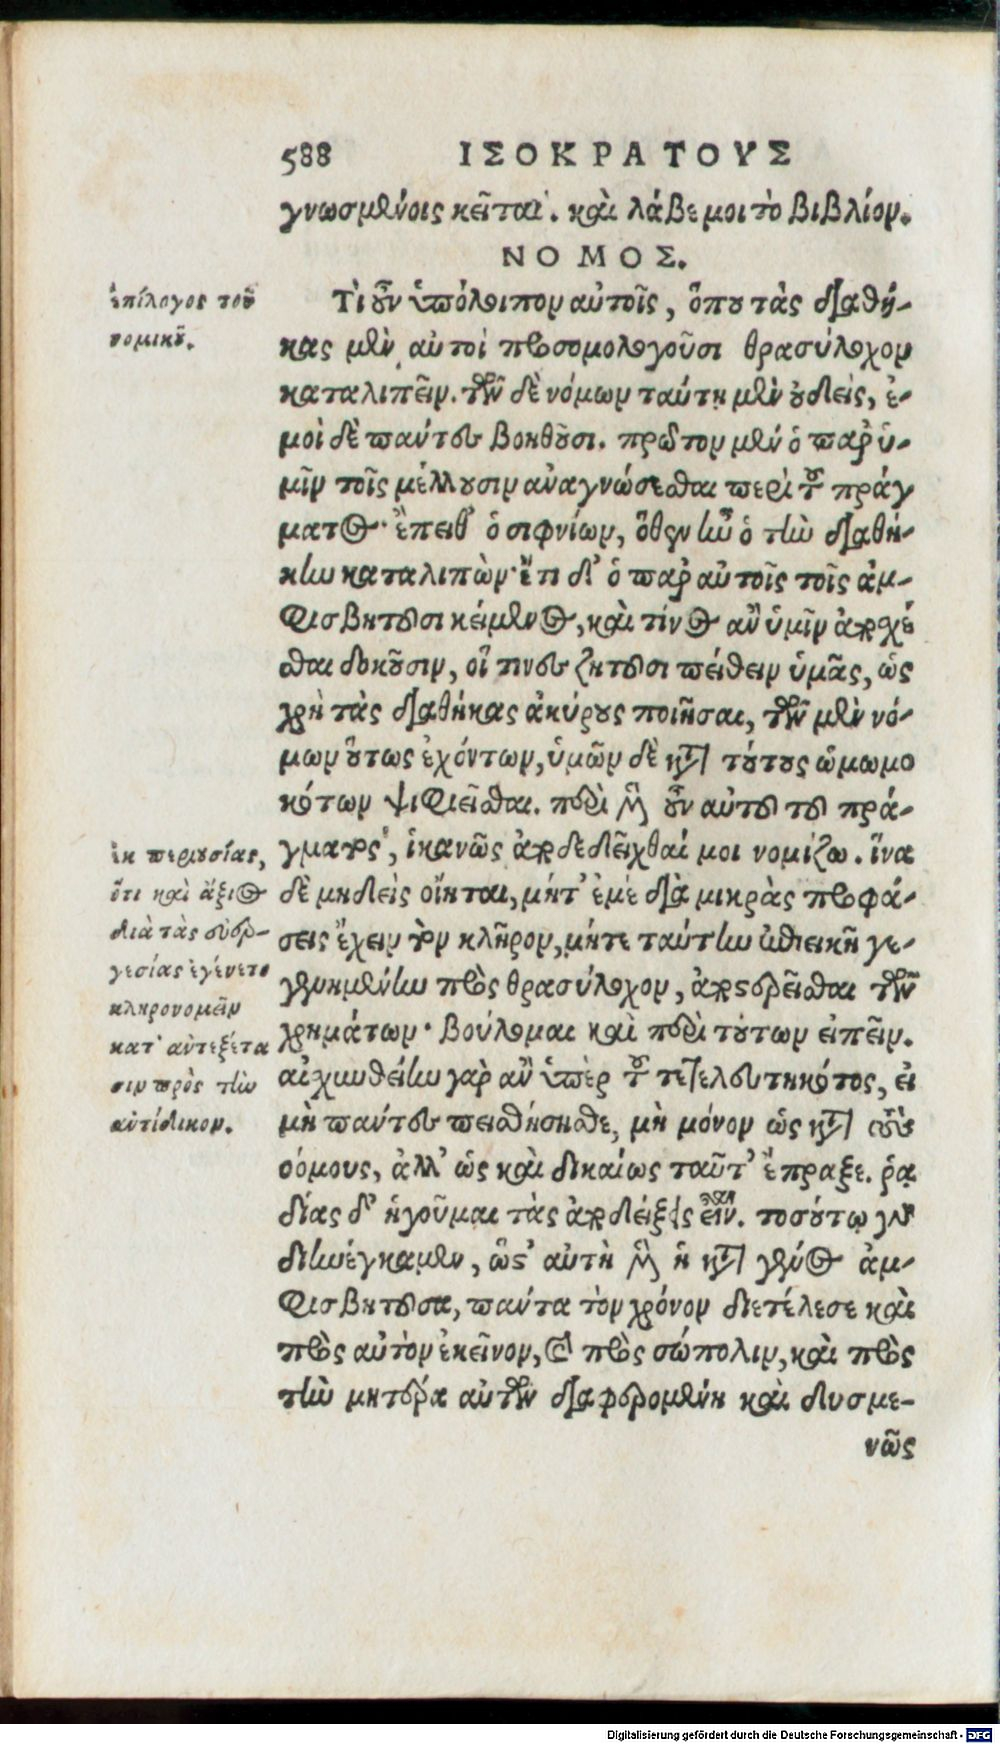 588 ΙΣΟΚΡΑΤΟΥΣ
γνωσμένοις κεῖται. καὶ λάβε μοι τὸ βιβλίον.
ΝΟΜΟΣ.
ἐπίλογος τοῦ
νομικοῦ.
Τὶ οὖν ὑπόλοιπον αὐτοῖς, ὅπου τὰς διαθή-
κας μὲν αὐτοὶ προσομολογοῦσι θρασύλοχον
καταλιπεῖν. τῶν δὲ νόμων ταύτῃ μὲν οὐδεὶς, ἐ-
μοὶ δὲ παντες βοηθοῦσι. πρῶτον μὲν ὁ παρ' ὑ-
μῖν τοῖς μέλλουσιν ἀναγνώσεσθαι περὶ τοῦ πράγ
ματος· ἔπειθ' ὁ σιφνίων, ὅθεν ἦν ὁ τὴν διαθή-
κην καταλιπὼν· ἔτι δ' ὁ παρ' αὐτοῖς τοῖς ἀμ-
φισβητοῦσι κείμενος, καὶ τίνος ἂν ὑμῖν ἀπσχέ
σθαι δοκοῦσιν, οἵ τινες ζητοῦσι πείθειν ὑμᾶς, ὡς
χρὴ τὰς διαθήκας ἀκύρους ποιῆσαι, τῶν μὲν νό-
μων οὕτως ἐχόντων, ὑμῶν δὲ κατὰ τούτους ὠμωμο
κότων ψιφιεῖσθαι. περὶ μὲν οὖν αὐτοῦ τοῦ πρά-
γματος, ἱκανῶς ἀποδεδεῖχθαί μοι νομίζω. ἵνα
δὲ μηδεὶς οἴηται, μήτ' ἐμὲ διὰ μικρὰς προφά-
σεις ἔχειν τὸν κλῆρον, μήτε ταύτην ἐπιεικῆ γε-
γενημένην πρὸς θρασύλοχον, ἀποστερεῖσθαι τῶν
χρημάτων· βούλομαι καὶ περὶ τούτων εἰπεῖν.
αἰχυνθείην γὰρ ἂν ὑπὲρ τοῦ τετελευτηκότος, εἰ
μὴ παντες πεισθήσησθε, μὴ μόνον ὡς κατὰ τοὺς
νόμους, ἀλλ' ὡς καὶ δικαίως ταῦτ' ἔπραξε. ῥᾳ
δίας δ' ἡγοῦμαι τὰς ἀποδείξεις εἶναι. τοσούτῳ γὰρ
διηνέγκαμεν, ὥστ' αὐτὴ μὲν ἡ κατὰ γένος ἀμ-
φισβητοῦσα, παντα τὸν χρόνον διετέλεσε καὶ
πρὸς αὐτὸν ἐκεῖνον, καὶ πρὸς σώπολιν, καὶ πρὸς
τὴν μητέρα αὐτῶν διαφερομένη καὶ δυσμε-
νῶς
ἐκ περιουσίας,
ὅτι καὶ ἄξιος
διὰ τὰς εὐερ-
γεσίας ἐγένετο
κληρονομεῖν
κατ' ἀντεξέτα
σιν πρὸς τὴν
ἀντίδικον.
Digitalisierung gefördert durch die Deutsche Forschungsgemeinschaft - DFG